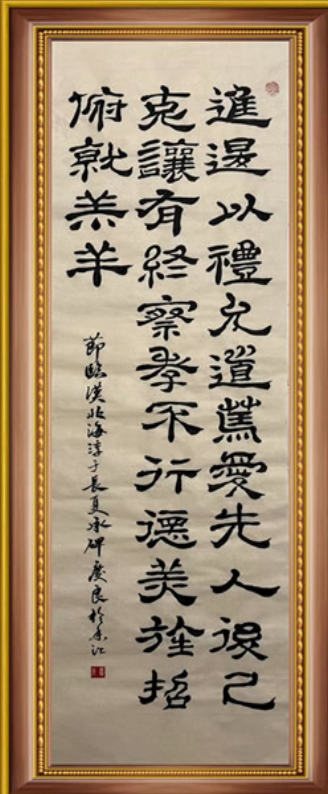 進退以禮允道篤愛先人後己
克讓有終察孝不行德美旌招
俯就羔羊
節臨漢北海淳于長夏承碑慶良於香江